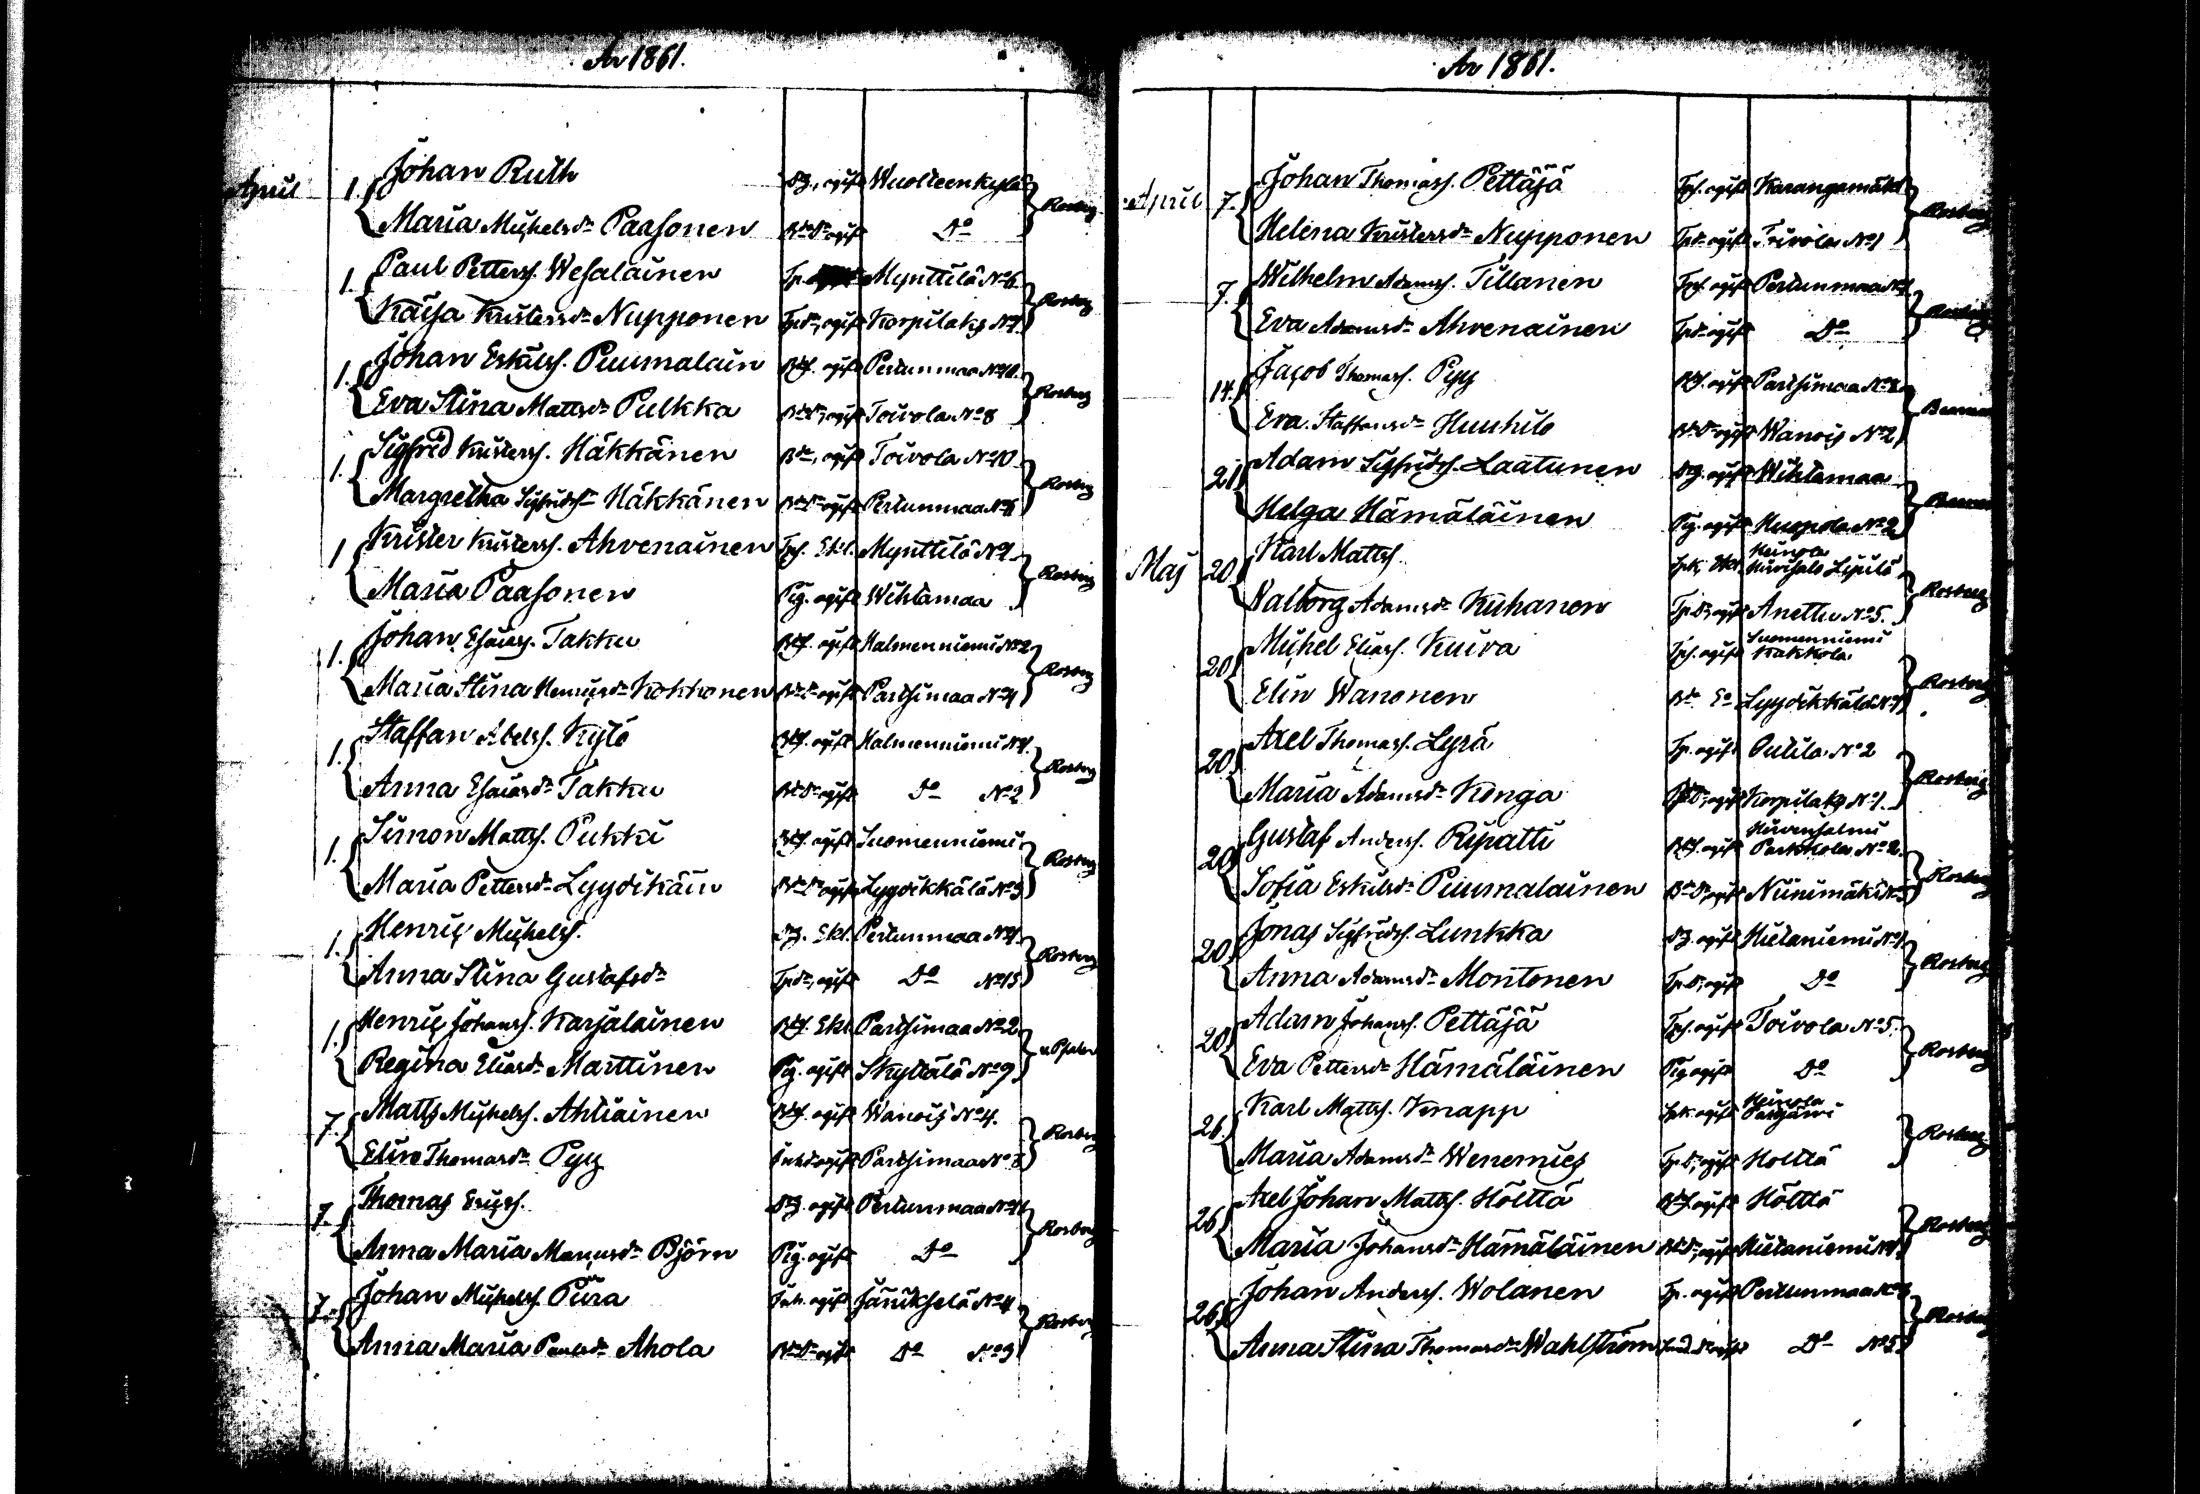 År 1861.
April 1. Johan Ruth Dg., ogift Wuolteenkylä Rosberg
Maria Michelsdr Paasonen BdeDr ogift Do
1. Paul Petterss. Wesalainen Tp. Mynttilä No 6. Rosberg
Kaisa Kristersdr Nupponen Tpdr, ogift Korpilaks No 1.
1. Johan Eskilss. Puumalain Bdes. ogift Pertunmaa No 10. Rosberg
Eva Stina Mattsdr Pulkka BdeDr, ogift Toivola No 8
1. Sigfrid Kristerss. Häkkänen Bde, ogift Toivola No 10. Rosberg
Margretha Sigfridsdr Häkkänen BdeDr ogift Pertunmaa No 8
1 Krister Kristerss. Ahvenainen Tps. Ekl. Mynttilä No 1. Rosberg
Maria Paasonen Pig. ogift Wihlamaa
1. Johan Esaiass. Takku Bdes. ogift Halmenniemi No 2 Rosberg
Maria Stina Henricsdr Kokkonen BdeDr ogift Partsimaa No 4
1. Staffan Abelss. Kylä Bdes. ogift Halmenniemi No 1. Rosberg
Anna Esaiasdr Takku BdeDr ogift Do No 2
1. Simon Matts. Pukki Bdes. ogift Suomenniemi Rosberg
Maria Pettersdr Lyydikäin BdeDr ogift Lyydikkälä No 3
1. Henric Michelss. Dg. Ekl. Pertunmaa No 4. Rosberg
Anna Stina Gustafsdr Tpdr, ogift Do No 15
1. Henric Johanss. Karjalainen Bdes. Ekl. Partsimaa No 2
Regina Eliasdr Marttinen Pig. ogift Skyttälä No 9
7. Matts Michelss. Ahtiainen Bdes. ogift Wanois No 4. Rosberg
Elin Thomasdr Pyy ogift Partsimaa No 8
7. Thomas Ericss. Dg. ogift Pertunmaa Rosberg
Anna Maria Björn Pig. ogift Do
7. Johan Michelss. Piira Inh. ogift Jänikselä No 4 Rosberg
Anna Maria Paulsdr Ahola BdeDr ogift Do No 3
År 1861.
April 7. Johan Thomass. Pettäjä Tps. ogift Karangamäki Rosberg
Helena Kristersdr Nupponen Tpdr ogift Toivola No 1
7. Wilhelm Adamss. Tillanen Tps. ogift Pertunmaa Rosberg
Eva Adamsdr Ahvenainen Tpdr ogift Do
14. Jacob Thomass. Pyy Bdes. ogift Partsimaa No 8
Eva Staffansdr Huuhilo BdeDr ogift Wanois No 2
21 Adam Sigfridss. Laatunen Dg. ogift Wihlamaa
Helga Hämäläinen Pig. ogift Kuopola No 2
Maj 20. Karl Matts. Heinola Lypilä Rosberg
Valborg Adamsdr Kuhanen TpDr ogift Anettu No 5.
20 Michel Eliass. Kuiva Tps. ogift Suomenniemi Kakkola Rosberg
Elin Wanonen Lyydikkälä No 1
20 Axel Thomass. Lyrä Tp. ogift Putila No 2 Rosberg
Maria Adamsdr Konga TpDr, ogift Korpilaks No 1.
20 Gustaf Anderss. Ripatti Bdes. ogift Hirvensalmi Parkkola No 2. Rosberg
Sofia Eskilsdr Puumalainen BdeDr, ogift Niinimäki
20 Jonas Sigfridss. Lunkka Dg. ogift Hietaniemi No 1 Rosberg
Anna Adamsdr Montonen TpDr, ogift Do
20 Adam Johanss. Pettäjä Tps. ogift Toivola No 5. Rosberg
Eva Pettersdr Hämäläinen Pig. ogift Do
26. Karl Matts. Knapp ogift Heinola Rosberg
Maria Adamsdr Wenemies TpDr, ogift Hölttä
26 Axel Johan Matts. Hölttä Bdes. ogift Hölttä Rosberg
Maria Johansdr Hämäläinen BdeDr, ogift Hietaniemi
26. Johan Anderss. Wolanen Tp. ogift Pertunmaa Rosberg
Anna Stina Thomasdr Wahlström Do No 5